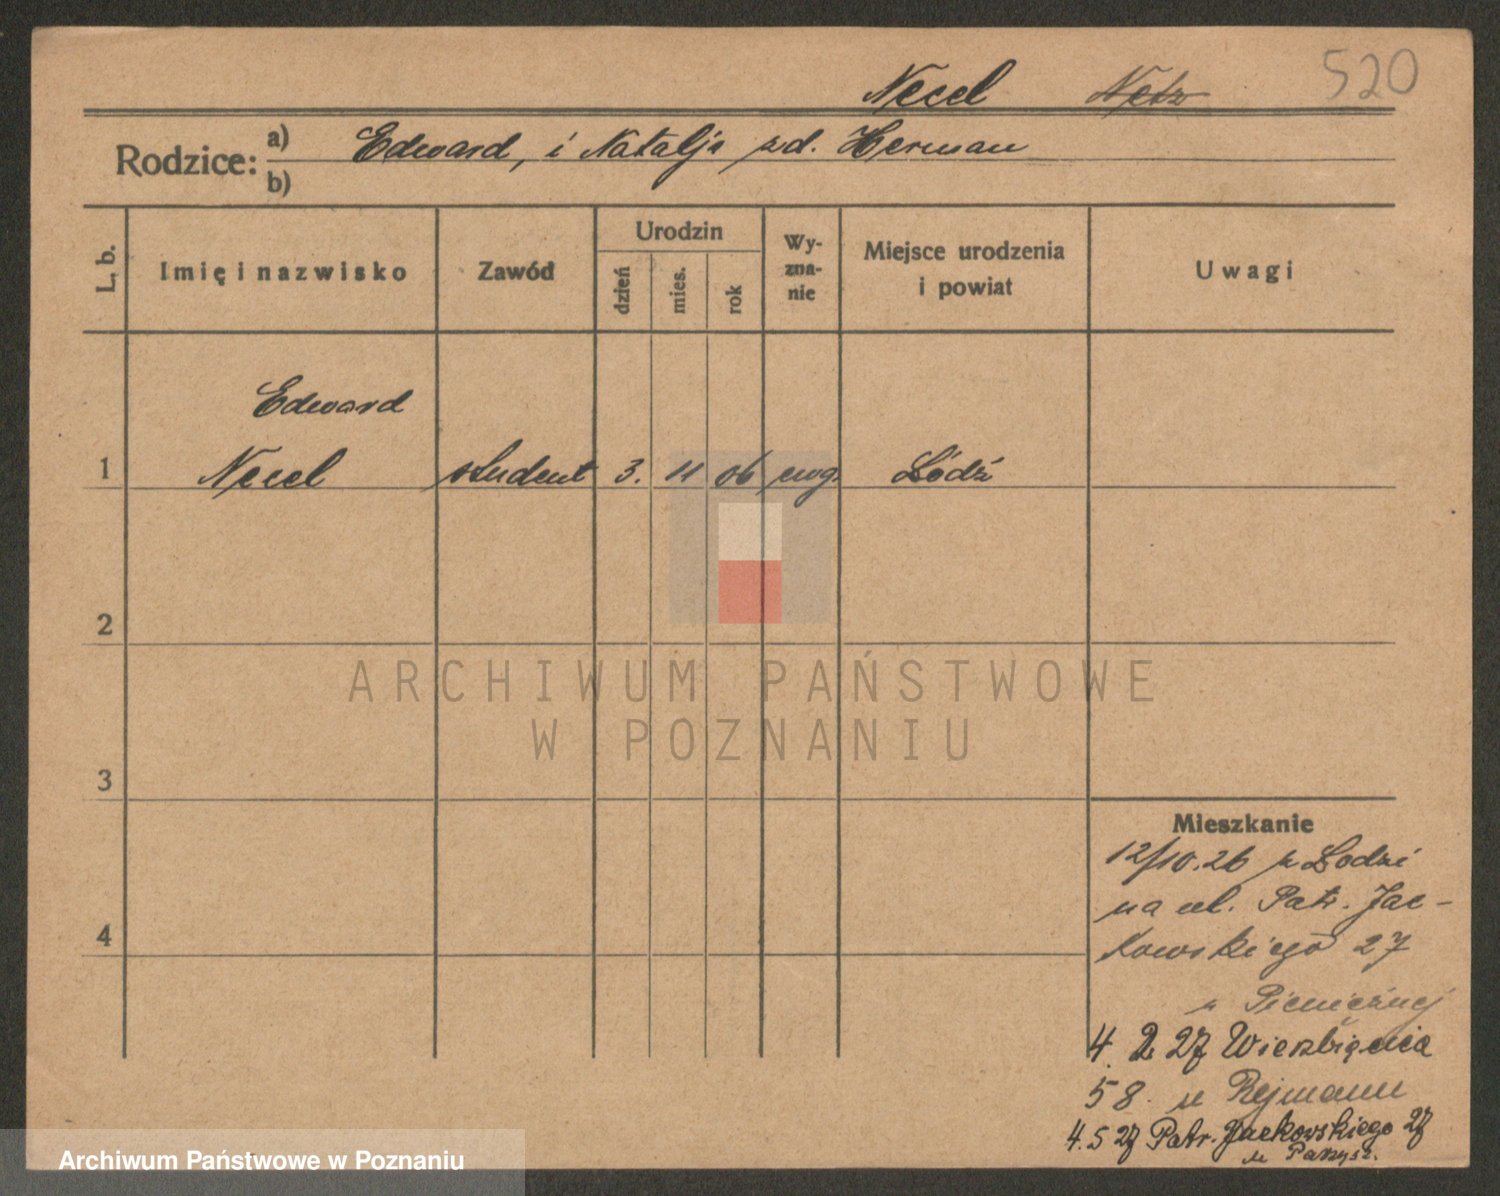 Necel ~~Netz~~ 520
Rodzice: a) Edward, i Natalja zd. Herman
b)
L. b. Imię i nazwisko Zawód Urodzin dzień mies. rok Wy-zna-nie Miejsce urodzenia i powiat Uwagi
Edward
1 Necel student 3. 11 06 ewg. Łódź
2
ARCHIWUM PAŃSTWOWE
W POZNANIU
3
Mieszkanie
12/10.26 z Łodzi
na ul. Patr. Jac-
4
kowskiego 27
u
4. 2 27 Wierzbięcice
58. u Rejmann
4.5 27 Patr. Jackowskiego 27
u
Archiwum Państwowe w Poznaniu